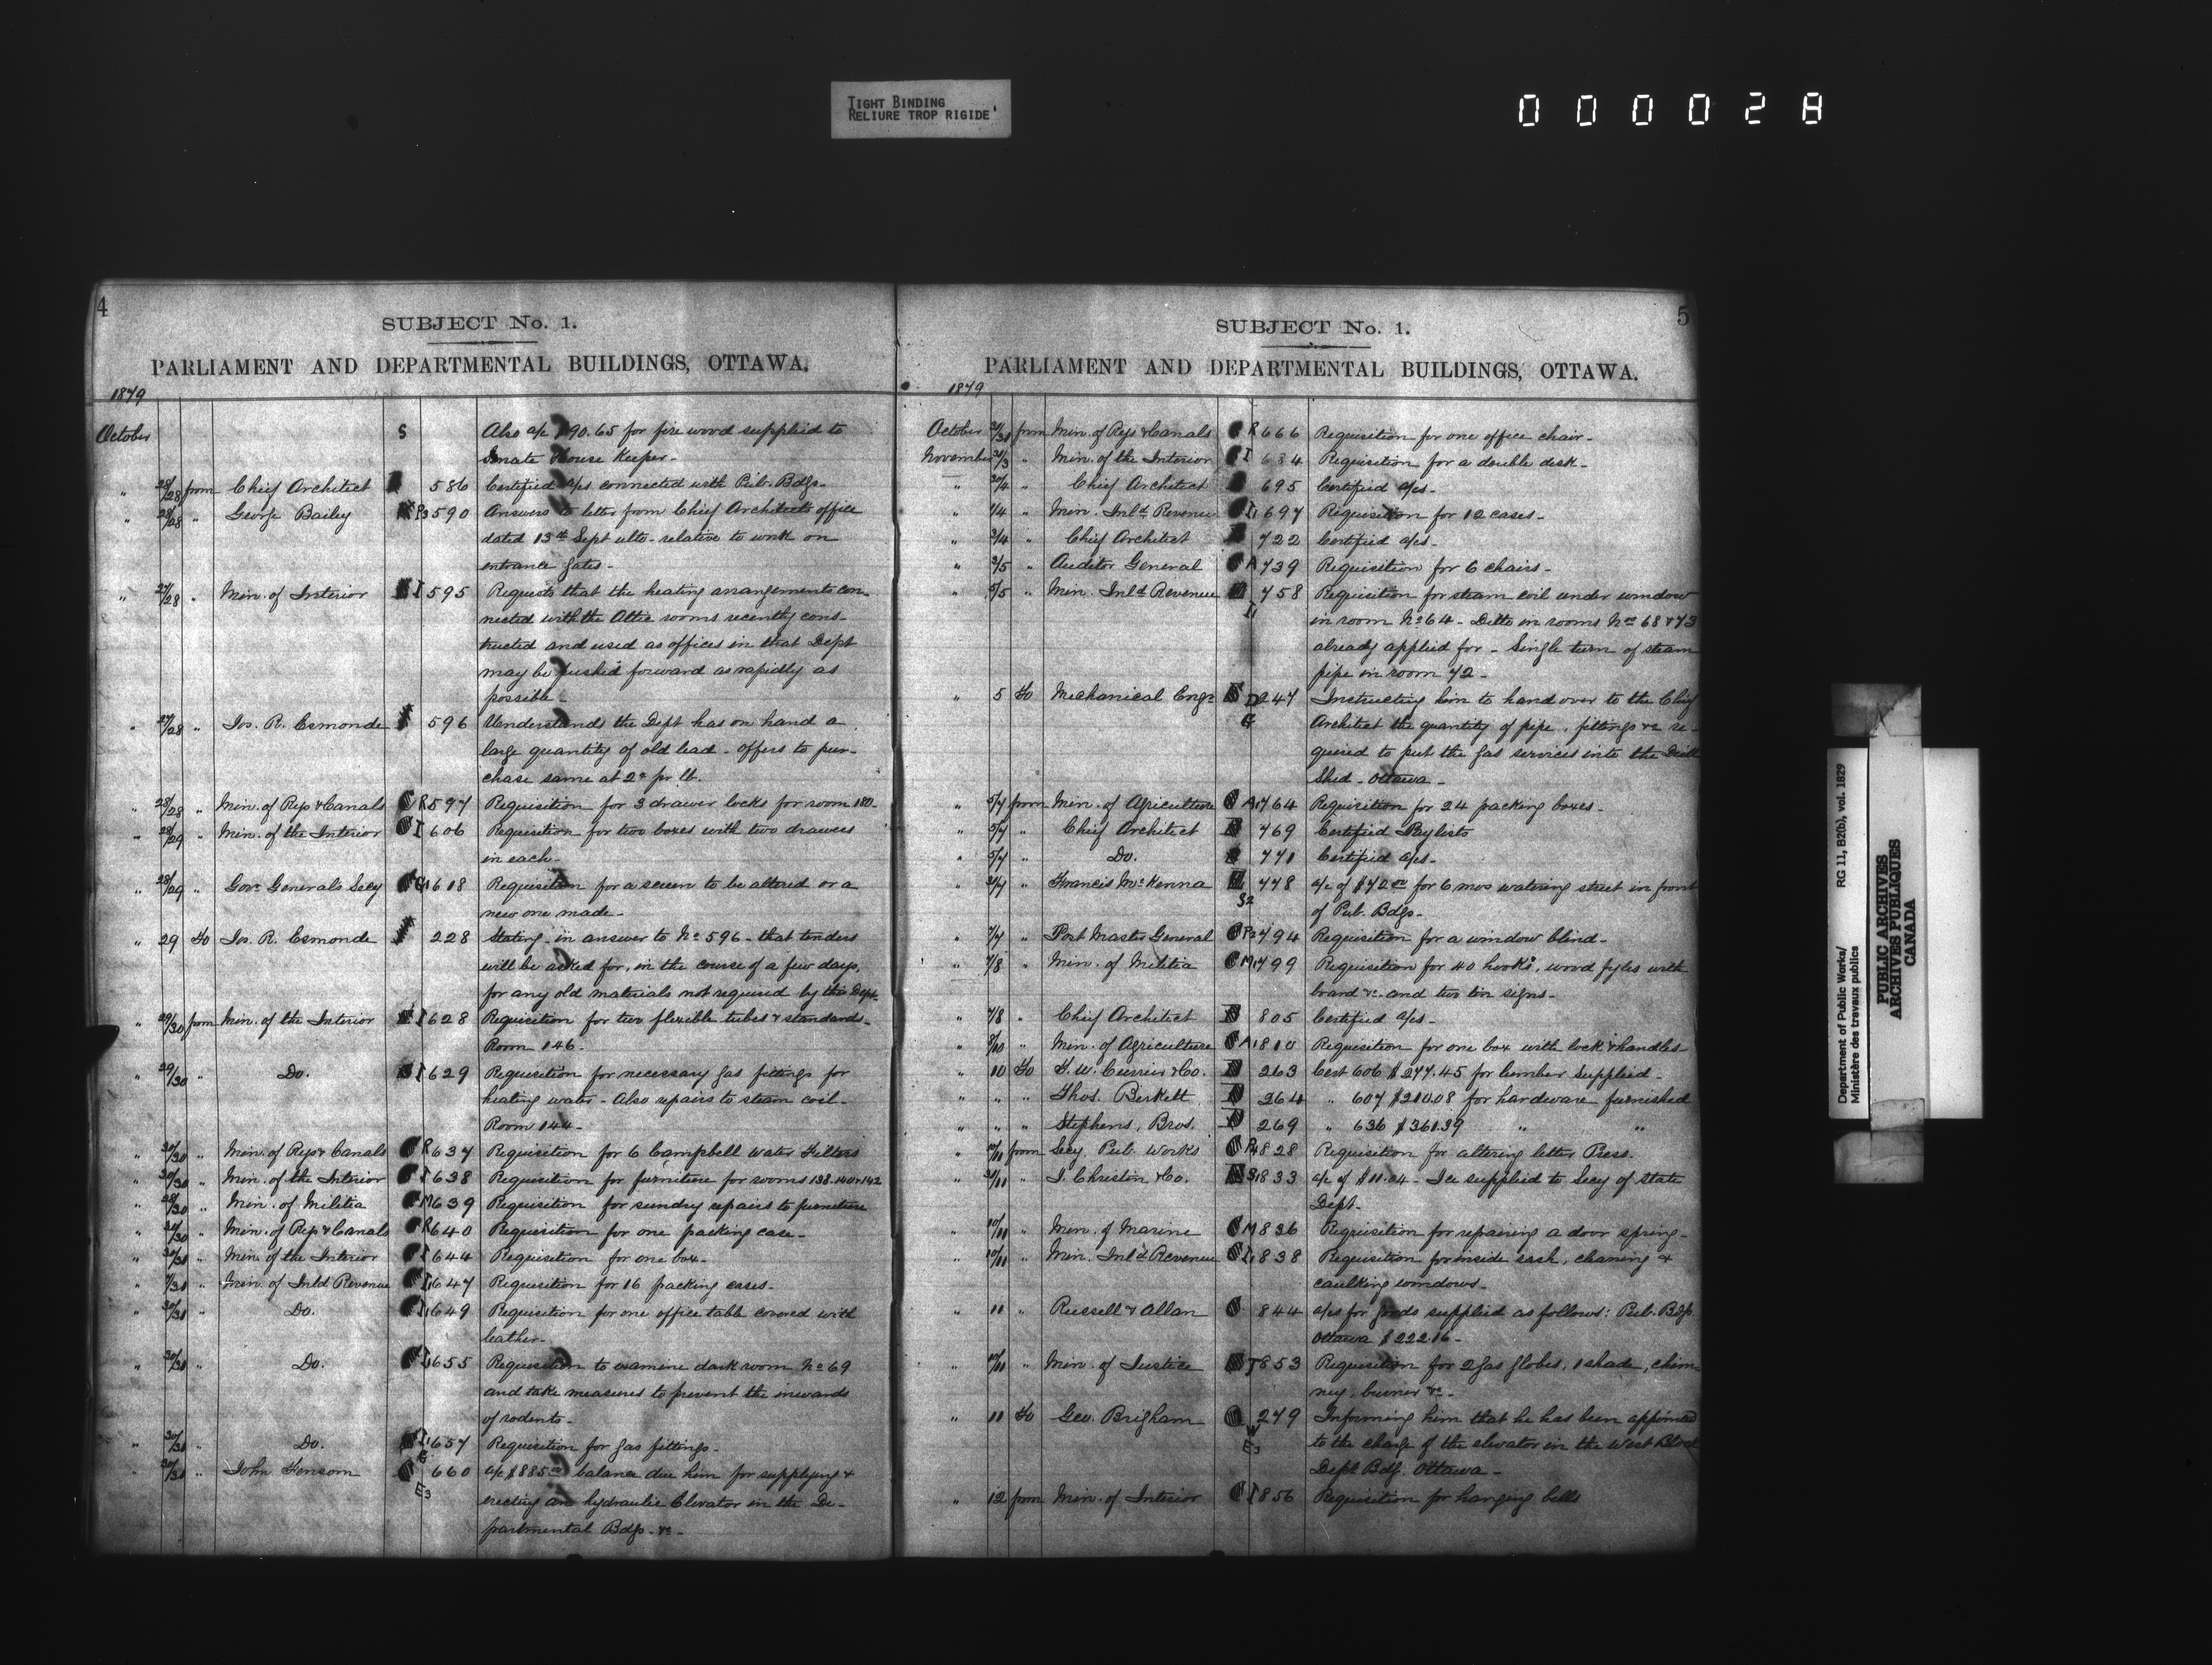 TIGHT BINDING
RELIURE TROP RIGIDE
000028
4
SUBJECT No. 1.
PARLIAMENT AND DEPARTMENTAL BUILDINGS, OTTAWA.
1879
October S Also a/c $90.65 for fire wood supplied to
Senate House Keeper-
" 28/28 from Chief Architect 586 Certified a/cs connected with Pub. Bdgs-
" 28/28 " George Bailey 590 Answers to letter from Chief Architects office
dated 13th Sept ulto- relative to work on
entrance gates-
" 27/28 " Min. of Interior I 595 Requests that the heating arrangements con-
nected with the Attic rooms recently cons-
tructed and used as offices in that Dept
may be pushed forward as rapidly as
possible-
" 27/28 " Jos. R. Esmonde 596 Understands the Dept has on hand a
large quantity of old lead - offers to pur-
chase same at 2c pr lb.
" 28/28 " Min. of Rys & Canals R 597 Requisition for 3 drawer locks for room 180-
" 28/29 " Min. of the Interior I 606 Requisition for two boxes with two drawers
in each-
" 28/29 " Govr Generals Secy G1 618 Requisition for a screen to be altered or a
new one made-
" 29 To Jos. R. Esmonde 228 Stating - in answer to No 596 - that tenders
will be asked for, in the course of a few days,
for any old materials not required by this Dept-
" 29/30 from Min. of the Interior I 628 Requisition for two flexible tubes & standards-
Room 146-
" 29/30 " Do. I 629 Requisition for necessary gas fittings for
heating water - Also repairs to steam coil-
Room 144-
" 30/30 " Min. of Rys & Canals R 637 Requisition for 6 Campbell Water Filters
" 30/30 " Min. of the Interior I 638 Requisition for furniture for rooms 138.140 & 142
" 28/30 " Min. of Militia M 639 Requisition for sundry repairs to furniture
" 30/30 " Min. of Rys & Canals R 640 Requisition for one packing case-
" 30/31 " Min. of the Interior I 644 Requisition for one box-
" 7/31 " Min. of Inld Revenue I1 647 Requisition for 16 packing cases-
" 30/31 " Do. I1 649 Requisition for one office table covered with
leather-
" 30/31 " Do. I1 655 Requisition to examine dark room No 69
and take measures to prevent the inwards
of rodents-
" 30/31 " Do. I1 657 Requisition for gas fittings-
" 30/31 " John Fensom E3 660 a/c $885.00 balance due him for supplying &
erecting an hydraulic Elevator in the De-
partmental Bdgs. &c-
5
SUBJECT No. 1.
PARLIAMENT AND DEPARTMENTAL BUILDINGS, OTTAWA.
1879
October 31/31 from Min. of Rys & Canals R 666 Requisition for one office chair-
November 31/3 " Min. of the Interior I 684 Requisition for a double desk-
" 31/4 " Chief Architect 695 Certified a/cs-
" 1/4 " Min. Inld Revenue I1 697 Requisition for 12 cases-
" 3/4 " Chief Architect 722 Certified a/cs-
" 3/5 " Auditor General A 739 Requisition for 6 chairs-
" 5/5 " Min. Inld Revenue I1 758 Requisition for steam coil under window
in room No 64 - Ditto in rooms Nos 68 & 73
already applied for - Single turn of steam
pipe in room 72-
" 5 To Mechanical Engr G 247 Instructing him to hand over to the Chief
Architect the quantity of pipe, fittings &c re-
quired to put the gas services into the Drill
Shed - Ottawa-
" 5/7 from Min. of Agriculture A1 764 Requisition for 24 packing boxes-
" 5/7 " Chief Architect 769 Certified Paylists
" 5/7 " Do. 771 Certified a/cs-
" 3/7 " Francis McKenna S2 778 a/c of $42.00 for 6 mos watering street in front
of Pub. Bdgs-
" 7/7 " Post Master General P2 794 Requisition for a window blind-
" 7/8 " Min. of Militia M1 799 Requisition for 40 hooks, wood fyles with
board &c. and two tin signs-
" 7/8 " Chief Architect 805 Certified a/cs-
" 8/10 " Min. of Agriculture A1 810 Requisition for one box with lock & handles-
" 10 To G. W. Currier & Co. 263 Cert 606 $277.45 for lumber supplied-
" " " Thos. Birkett 264 " 607 $210.08 for hardware furnished
" " " Stephens, Bros. 269 " 636 $361.39 " "
" 10/11 from Secy Pub. Works P4 828 Requisition for altering letter Press.
" 31/11 " J. Christin & Co. S1 833 a/c of $11.04 - Ice supplied to Secy of State
Dept-
" 10/11 " Min. of Marine M 836 Requisition for repairing a door spring-
" 10/11 " Min. Inld Revenue I1 838 Requisition for inside sash, cleaning &
caulking windows-
" 11 " Russell & Allan 844 a/cs for goods supplied as follows: Pub. Bdgs
Ottawa $222.16-
" 10/11 " Min. of Justice J 853 Requisition for 2 gas globes, 1 shade, chim-
ney, burner &c-
" 11 To Geo. Brigham W E3 279 Informing him that he has been appointed
to the charge of the elevator in the West Block
Deptl Bdg. Ottawa-
" 12 from Min. of Interior I 856 Requisition for hanging bells
Department of Public Works/ RG 11, B2(b), vol. 1829
Ministère des travaux publics
PUBLIC ARCHIVES
ARCHIVES PUBLIQUES
CANADA